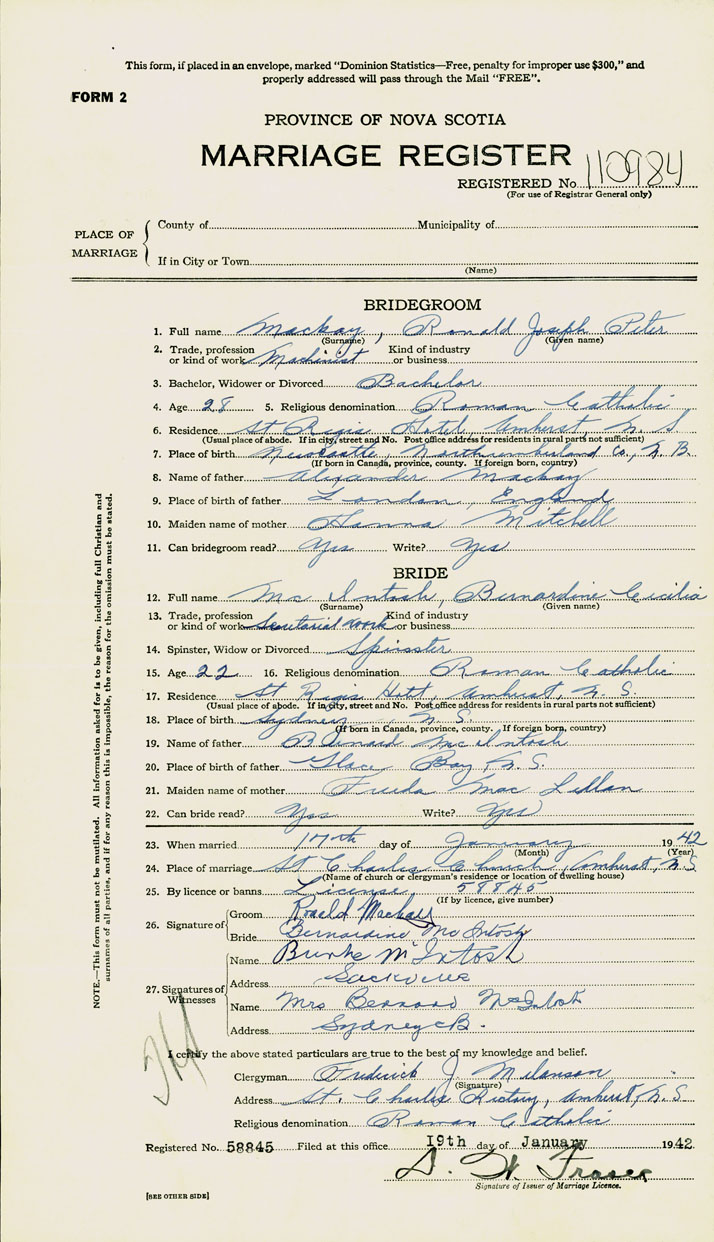 This form, if placed in an envelope, marked "Dominion Statistics—Free, penalty for improper use $300," and
properly addressed will pass through the Mail "FREE".
FORM 2
PROVINCE OF NOVA SCOTIA
MARRIAGE REGISTER
REGISTERED No. 110984
(For use of Registrar General only)
PLACE OF MARRIAGE
County of Municipality of
If in City or Town
(Name)
BRIDEGROOM
1. Full name Mackay, Ronald Joseph Peter
(Surname) (Given name)
2. Trade, profession or kind of work Machinist Kind of industry or business
3. Bachelor, Widower or Divorced Bachelor
4. Age 28 5. Religious denomination Roman Catholic
6. Residence St Regis Hotel, Amherst N S
(Usual place of abode. If in city, street and No. Post office address for residents in rural parts not sufficient)
7. Place of birth Newcastle, Northumberland Co., N. B.
(If born in Canada, province, county. If foreign born, country)
8. Name of father Alexander Mackay
9. Place of birth of father London, England
10. Maiden name of mother Hanna Mitchell
11. Can bridegroom read? Yes Write? Yes
BRIDE
12. Full name Mc Intosh, Bernardine Cicilia
(Surname) (Given name)
13. Trade, profession or kind of work Secretarial work Kind of industry or business
14. Spinster, Widow or Divorced Spinster
15. Age 22 16. Religious denomination Roman Catholic
17. Residence St Regis Hotl, Amherst, N. S.
(Usual place of abode. If in city, street and No. Post office address for residents in rural parts not sufficient)
18. Place of birth Sydney N. S.
(If born in Canada, province, county. If foreign born, country)
19. Name of father Bernard McIntosh
20. Place of birth of father Glace Bay, N. S.
21. Maiden name of mother Freda Mac Lellan
22. Can bride read? Yes Write? Yes
23. When married 17th day of January 1942
(Month) (Year)
24. Place of marriage St Charles Church, Amherst, N. S.
(Name of church or clergyman's residence or location of dwelling house)
25. By licence or banns License, 58845
(If by licence, give number)
26. Signature of
Groom Ronald Mackay
Bride Bernardine Mc Intosh
27. Signatures of Witnesses
Name Burke McIntosh
Address Sackville
Name Mrs Bernard McIntosh
Address Sydney CB.
I certify the above stated particulars are true to the best of my knowledge and belief.
Clergyman Frederick J. Melanson
(Signature)
Address St. Charles Rectory, Amherst, N. S
Religious denomination Roman Catholic
Registered No. 58845 Filed at this office 19th day of January 1942
D. W. Fraser
Signature of Issuer of Marriage Licence.
[SEE OTHER SIDE]
NOTE.—This form must not be mutilated. All information asked for is to be given, including full Christian and
surnames of all parties, and if for any reason this is impossible, the reason for the omission must be stated.